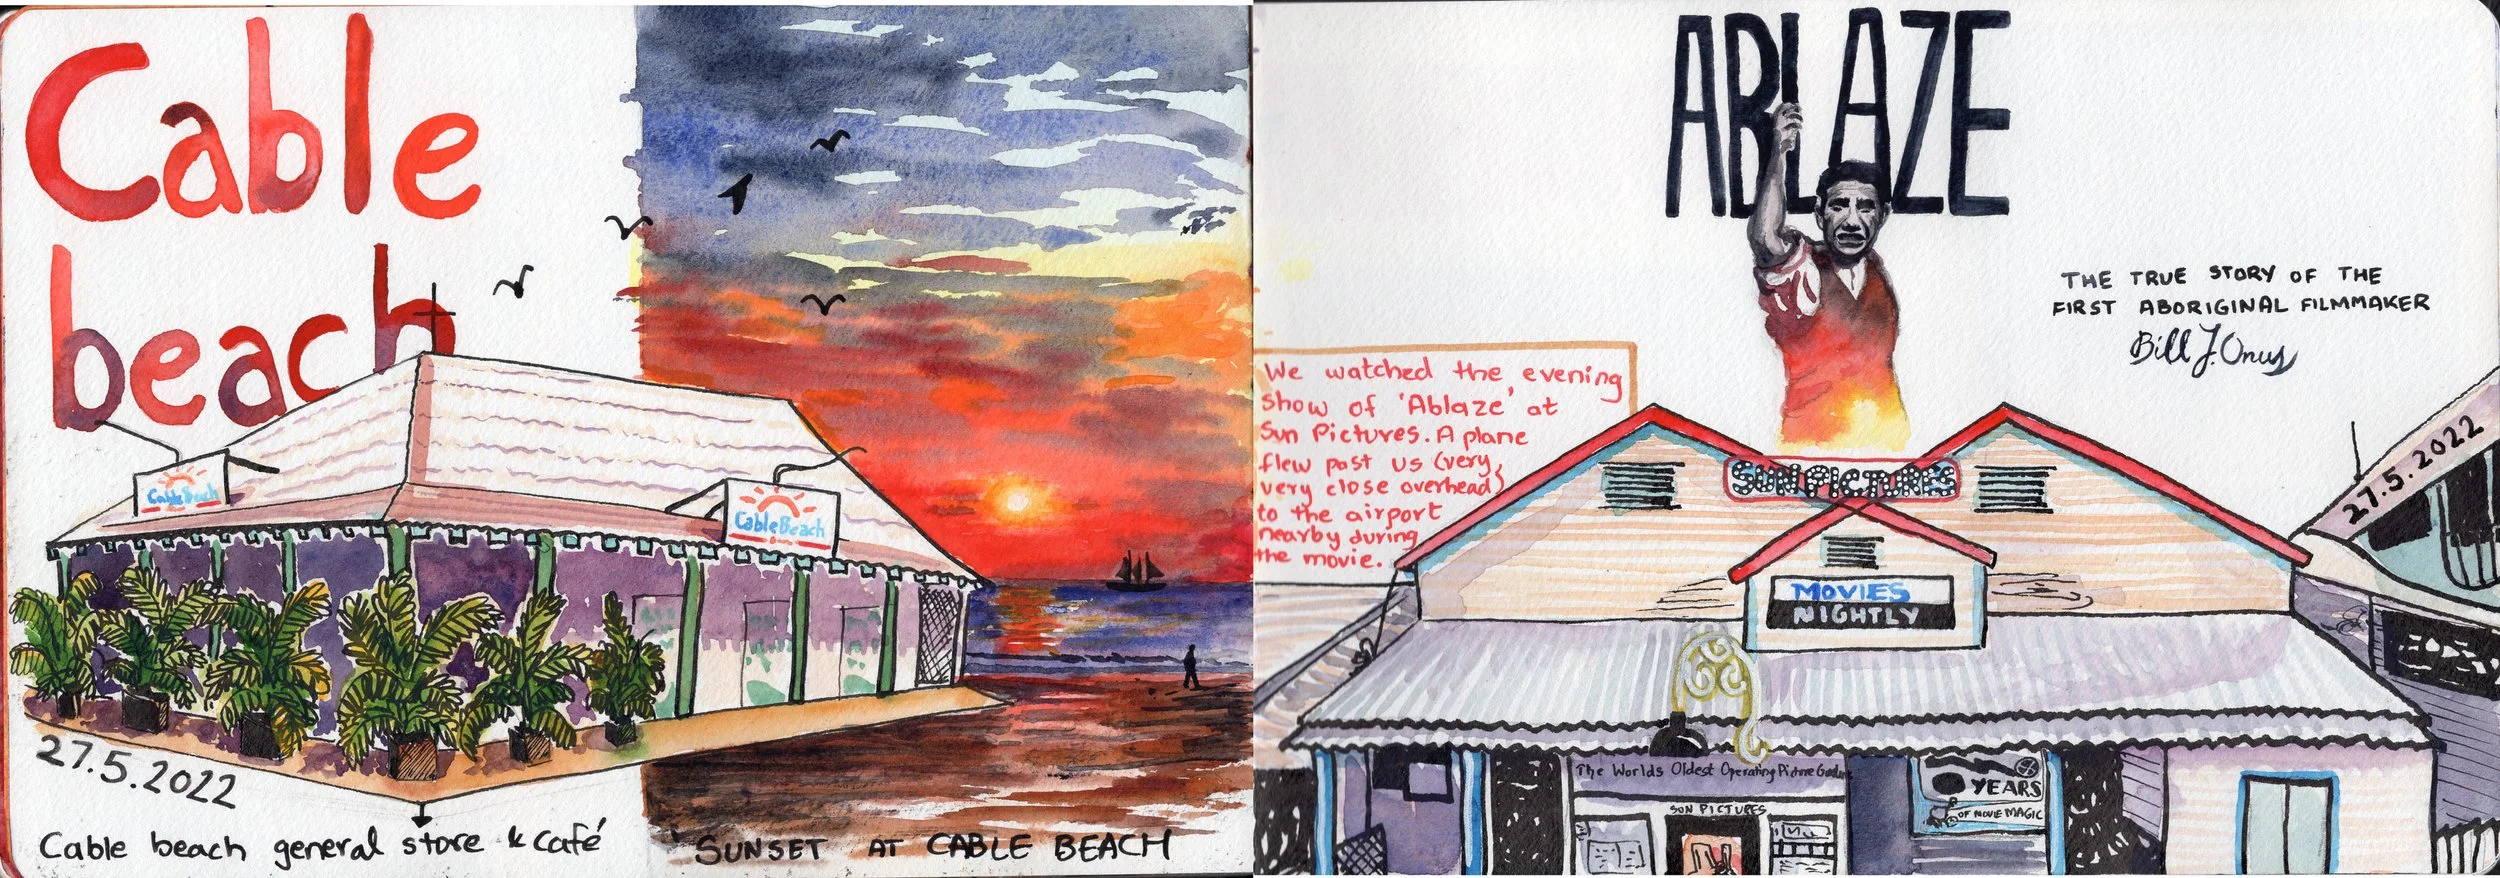 Cable
beach
Cable Beach
Cable Beach
27.5.2022
Cable beach general store & café
SUNSET AT CABLE BEACH
ABLAZE
THE TRUE STORY OF THE
FIRST ABORIGINAL FILMMAKER
Bill J. Onus
We watched the evening
show of 'Ablaze' at
Sun Pictures. A plane
flew past us (very,
very close overhead)
to the airport
nearby during
the movie.
27.5.2022
SUN PICTURES
MOVIES
NIGHTLY
The Worlds Oldest Operating Picture
SUN PICTURES
YEARS
OF MOVIE MAGIC